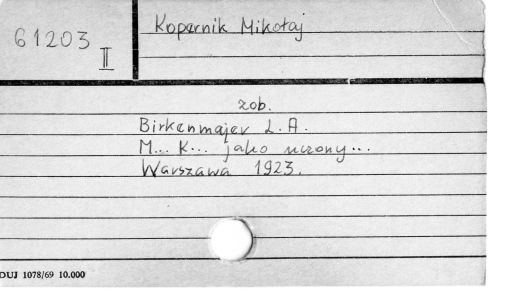 61203
II
Kopernik Mikołaj
zob.
Birkenmajer L. A.
M... K... jako uczony...
Warszawa 1923.
DUJ 1078/69 10.000